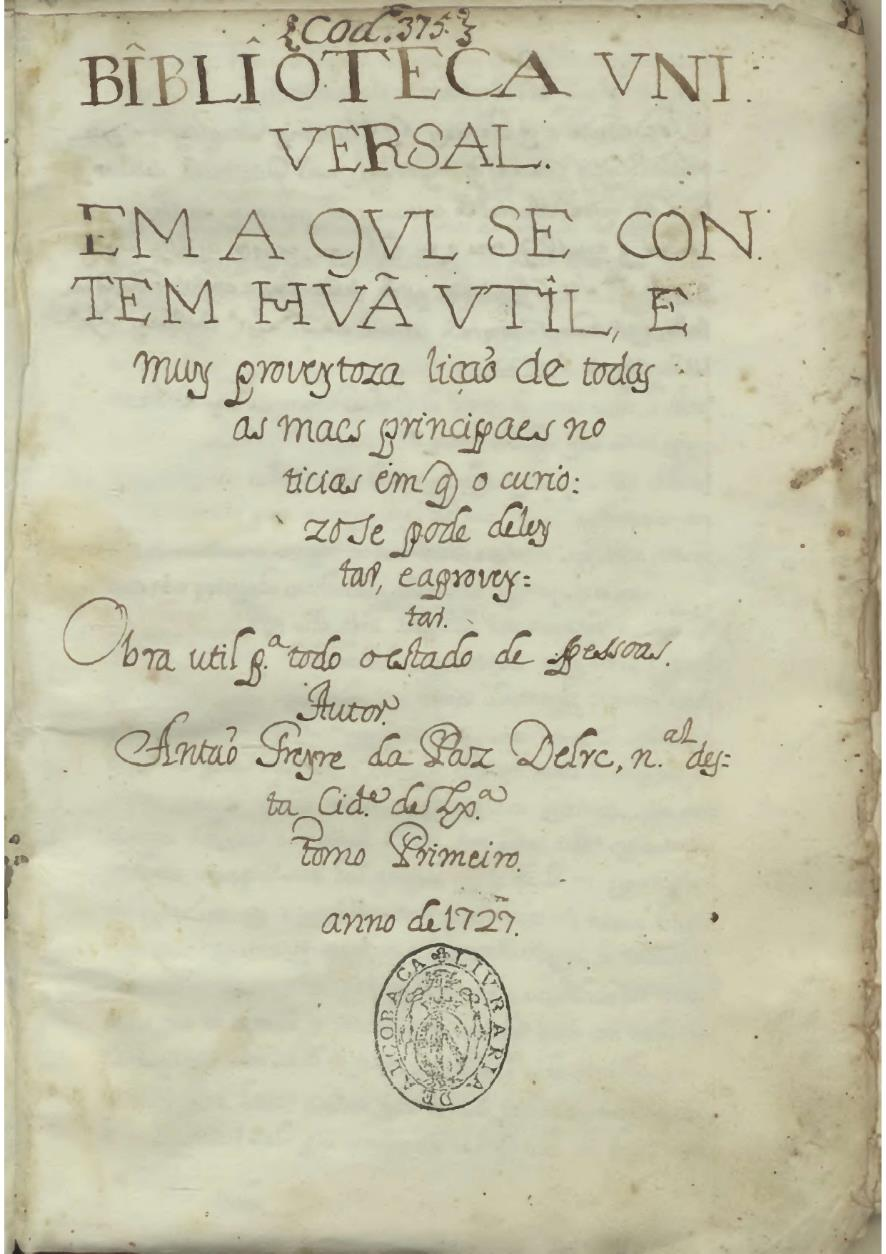 {Cod. 375.}
BÎBLÎOTECA VNI
VERSAL.
EM A QVL SE CON.
TEM HVÃ VTÎL, E
muy proveytoza liçaõ de todas
as maes principaes no
ticias em q̃ o curio:
zo se pode deley
tar, e aprovey=
tar.
Obra util p.ª todo o estado de pessoas.
Autor.
Antaõ Freyre da Paz Delrc, n.al des=
ta Cid.e de Lx.ª
Tomo Primeiro.
anno de 1727.
LIVRARIA DE ALCOBACA